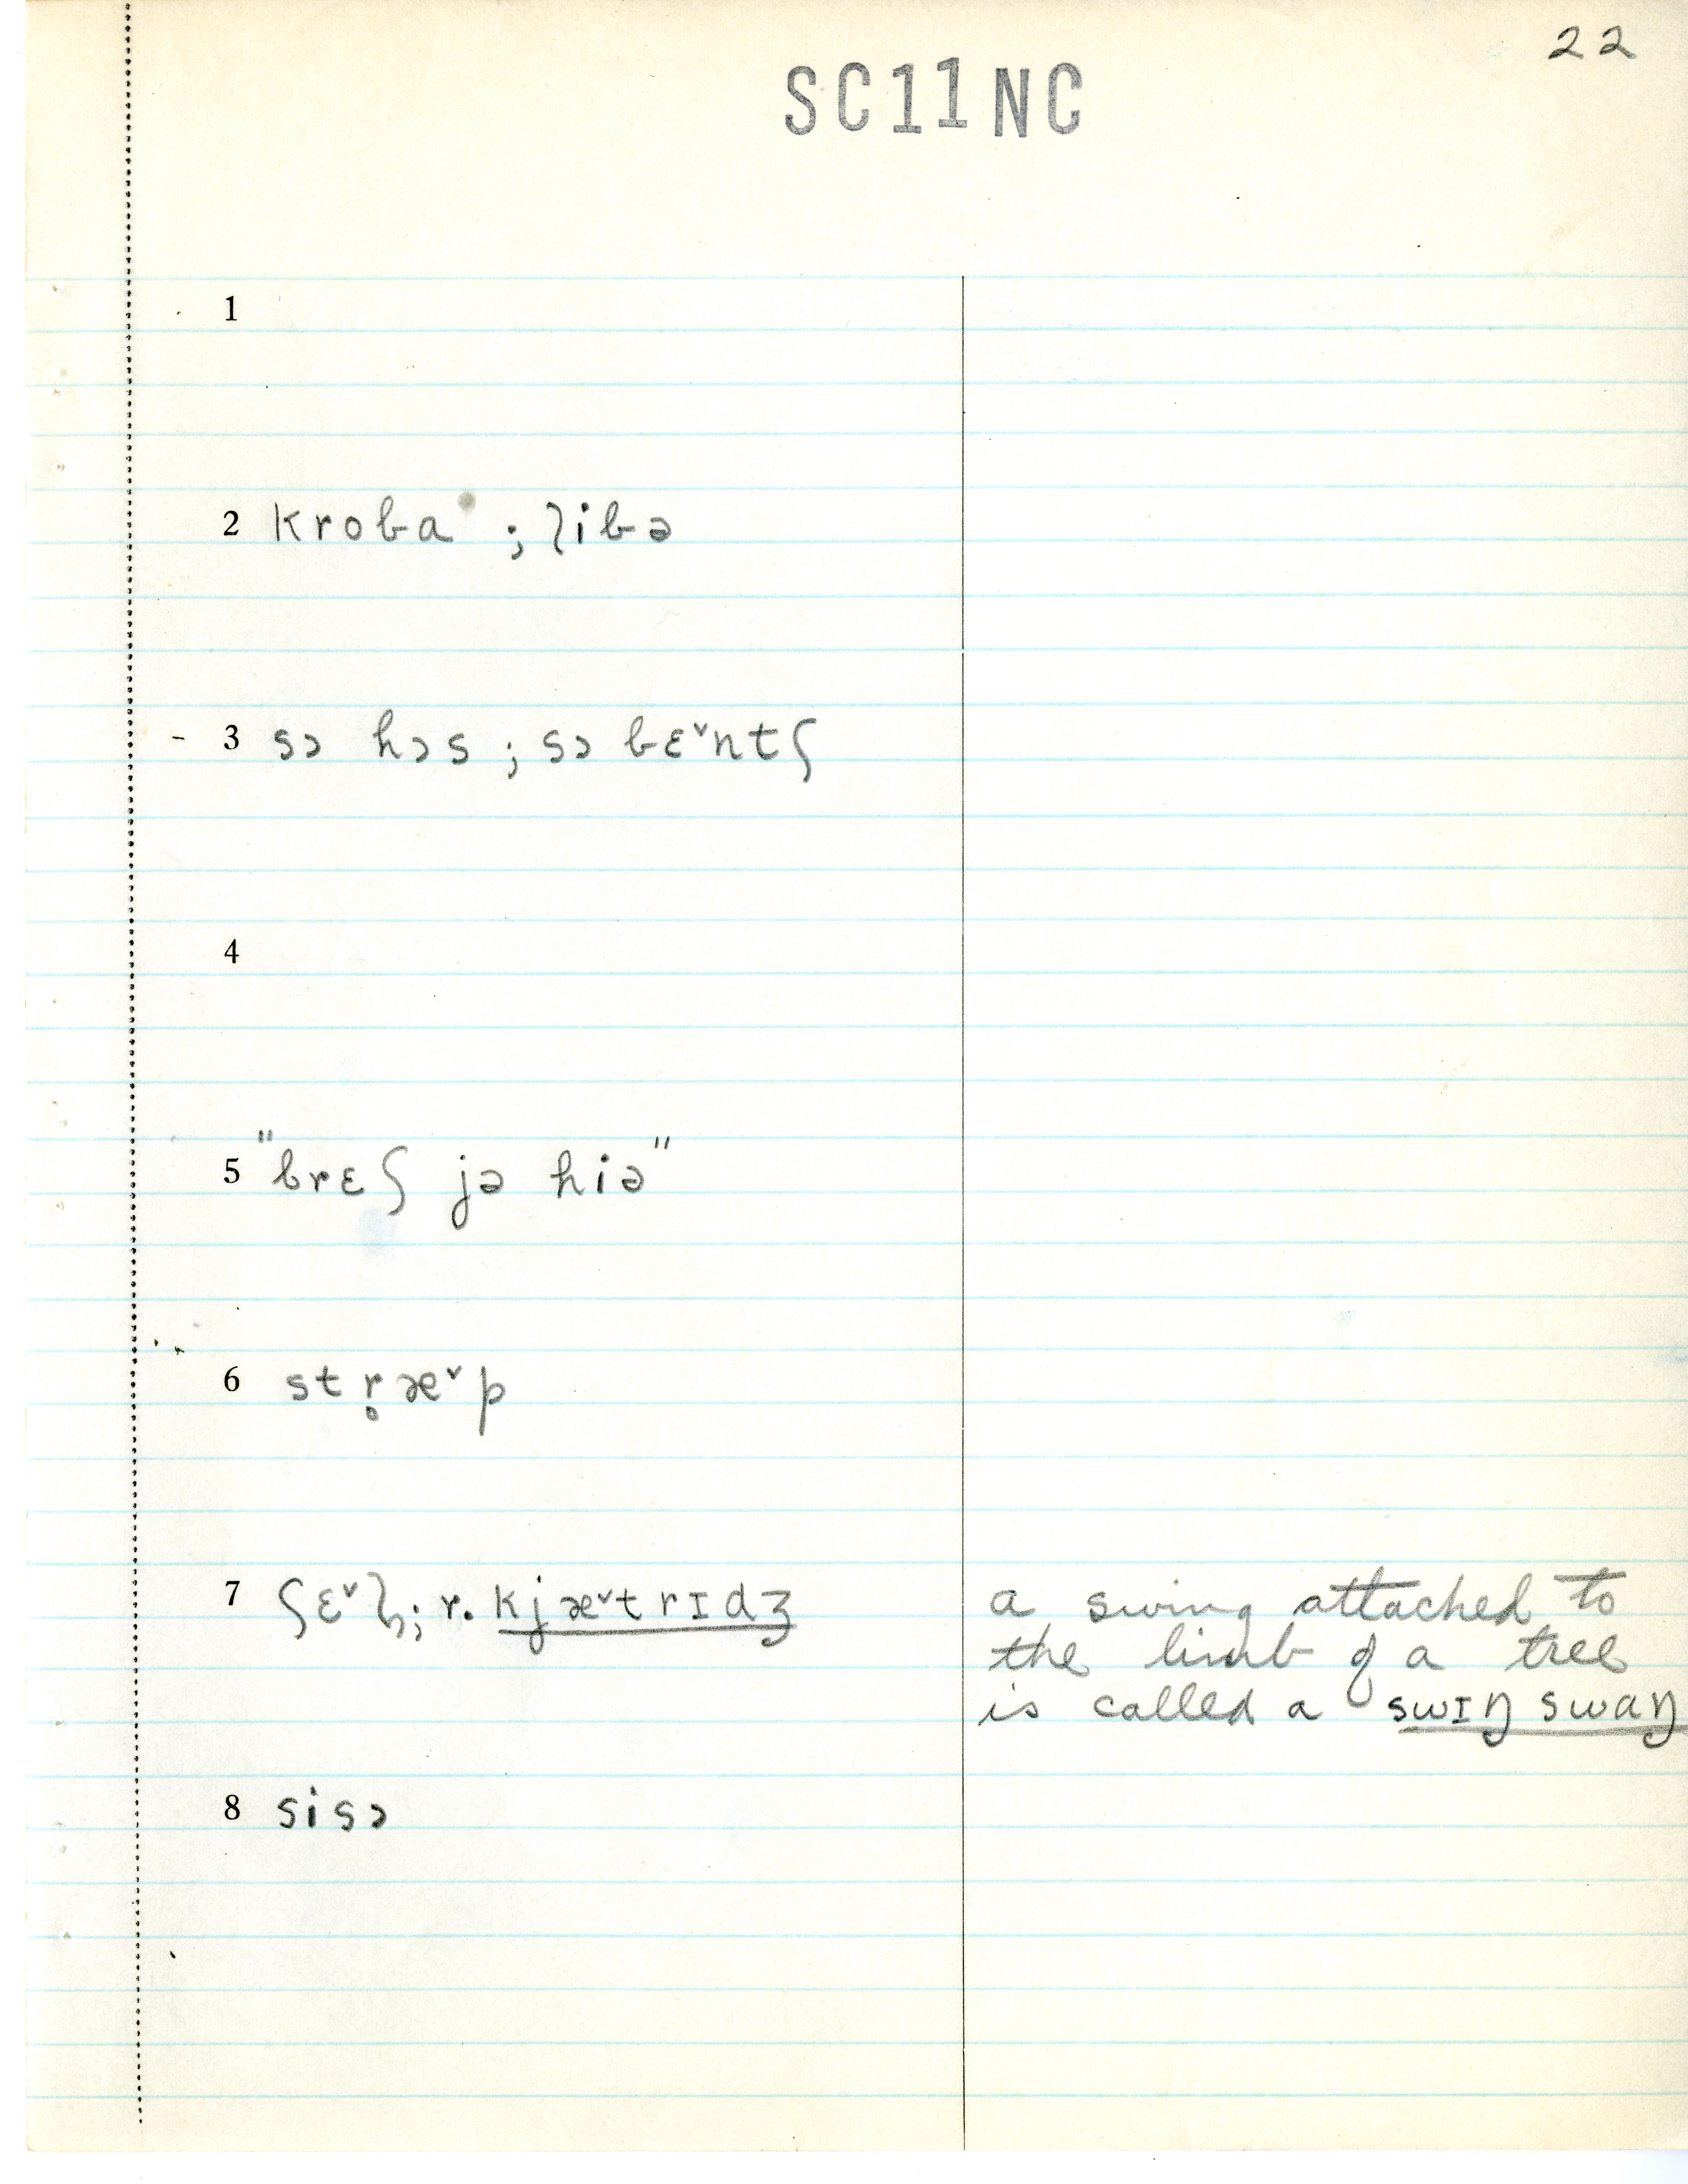 22
SC11NC
1
2 kroba ; libə
- 3 sɔ hɔs ; sɔ bɛ˅ntʃ
4
5 "brɛʃ jə hiə"
6 str̥æ˅p
7 ʃɛ˅l ; r. kjæ˅trɪdʒ
a swing attached to
the limb of a tree
is called a swɪŋ swaŋ
8 sisɔ